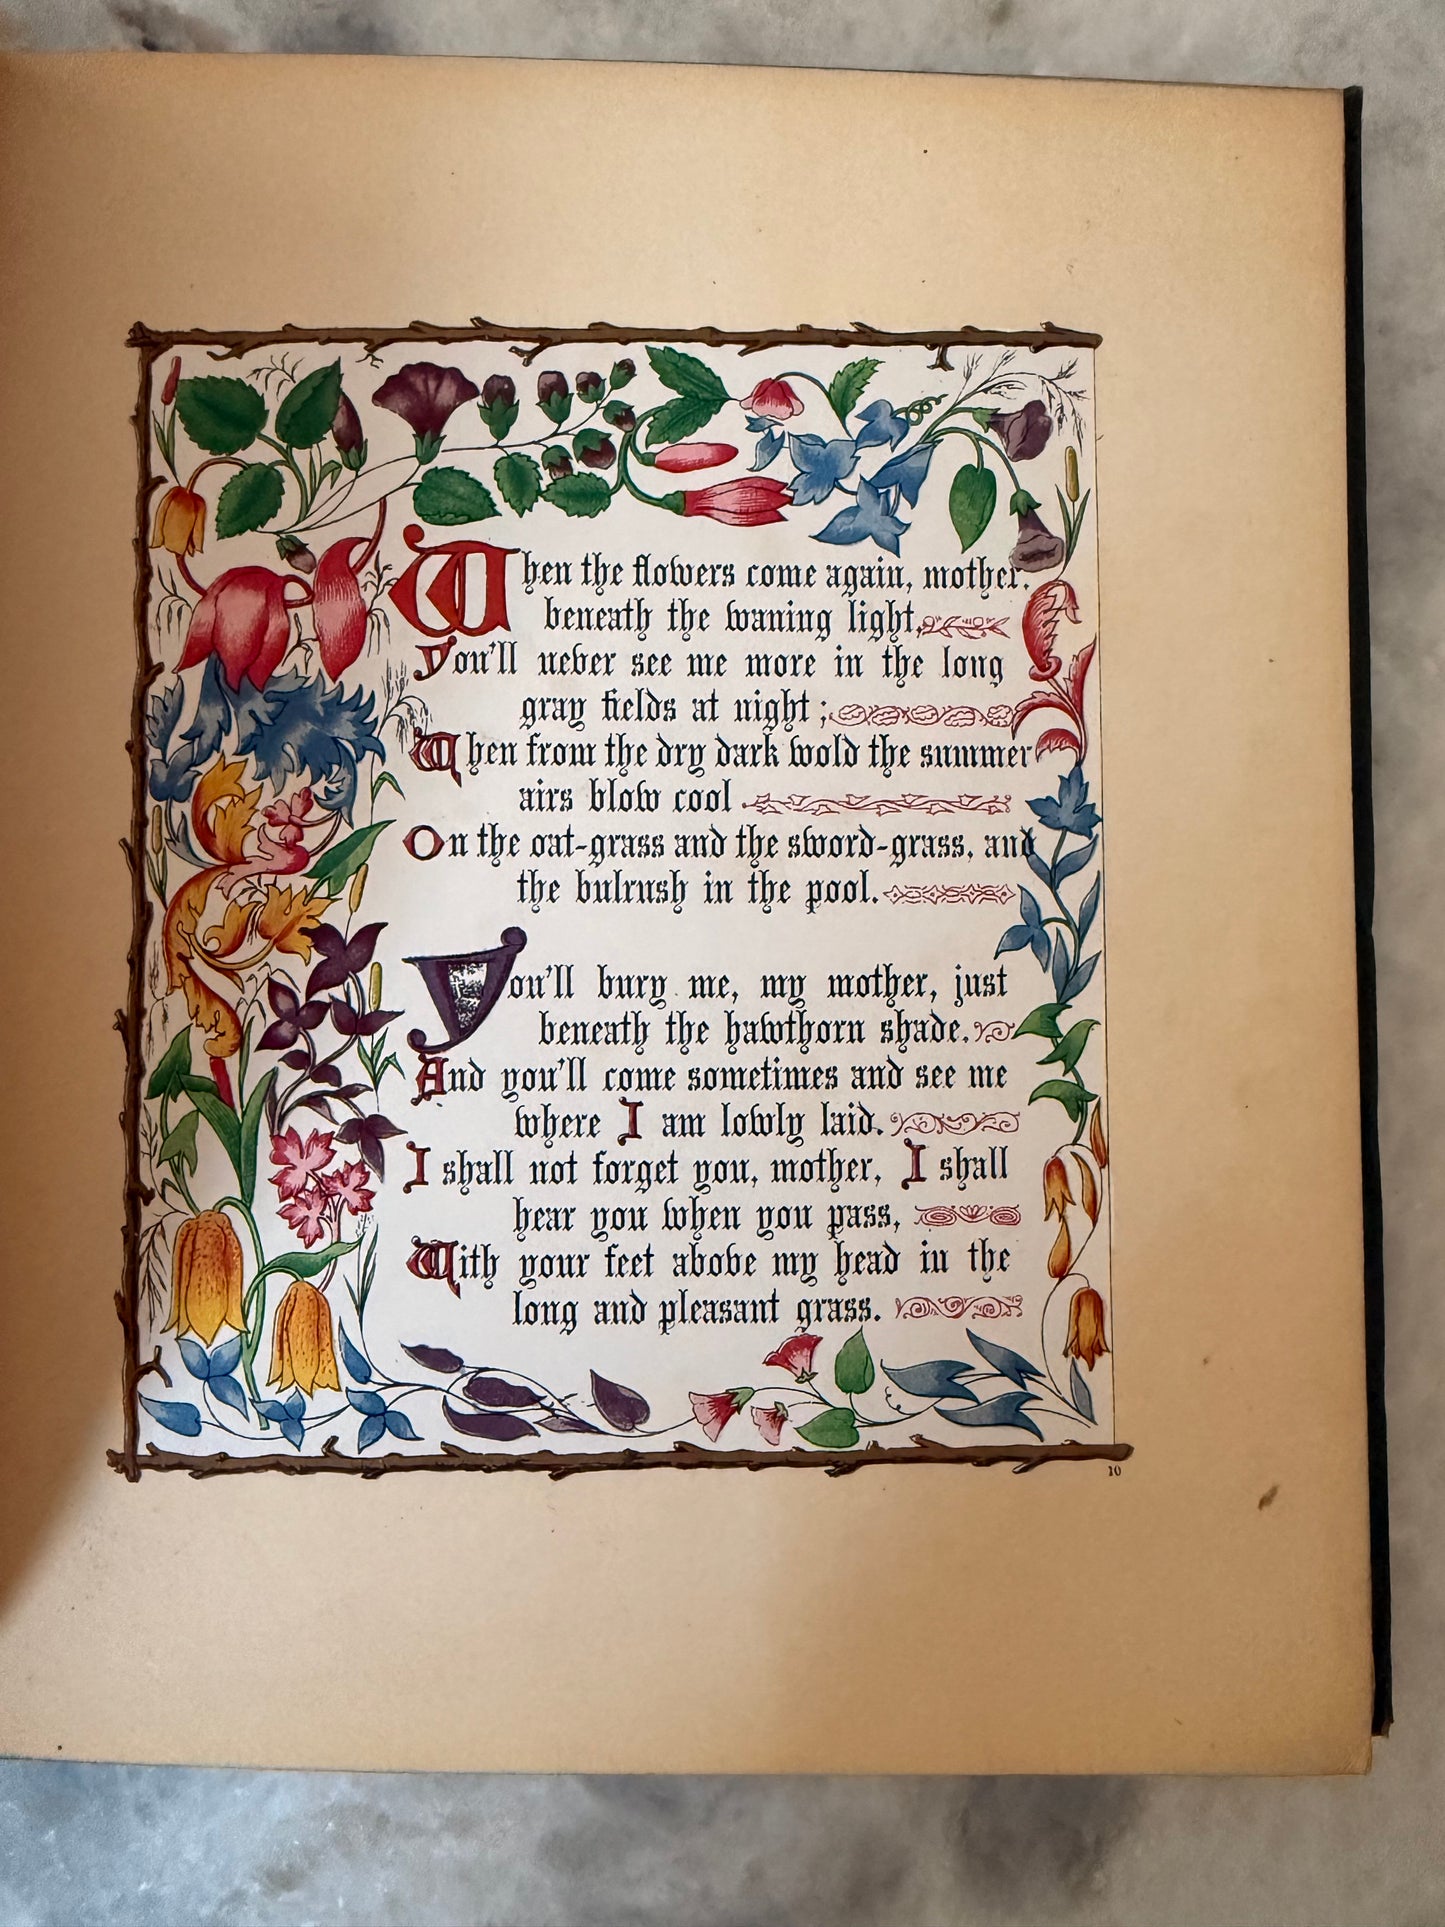 When the flowers come again, mother,
beneath the waning light,
You'll never see me more in the long
gray fields at night;
When from the dry dark wold the summer
airs blow cool
On the oat-grass and the sword-grass, and
the bulrush in the pool.
You'll bury me, my mother, just
beneath the hawthorn shade.
And you'll come sometimes and see me
where I am lowly laid.
I shall not forget you, mother, I shall
hear you when you pass,
With your feet above my head in the
long and pleasant grass.
10